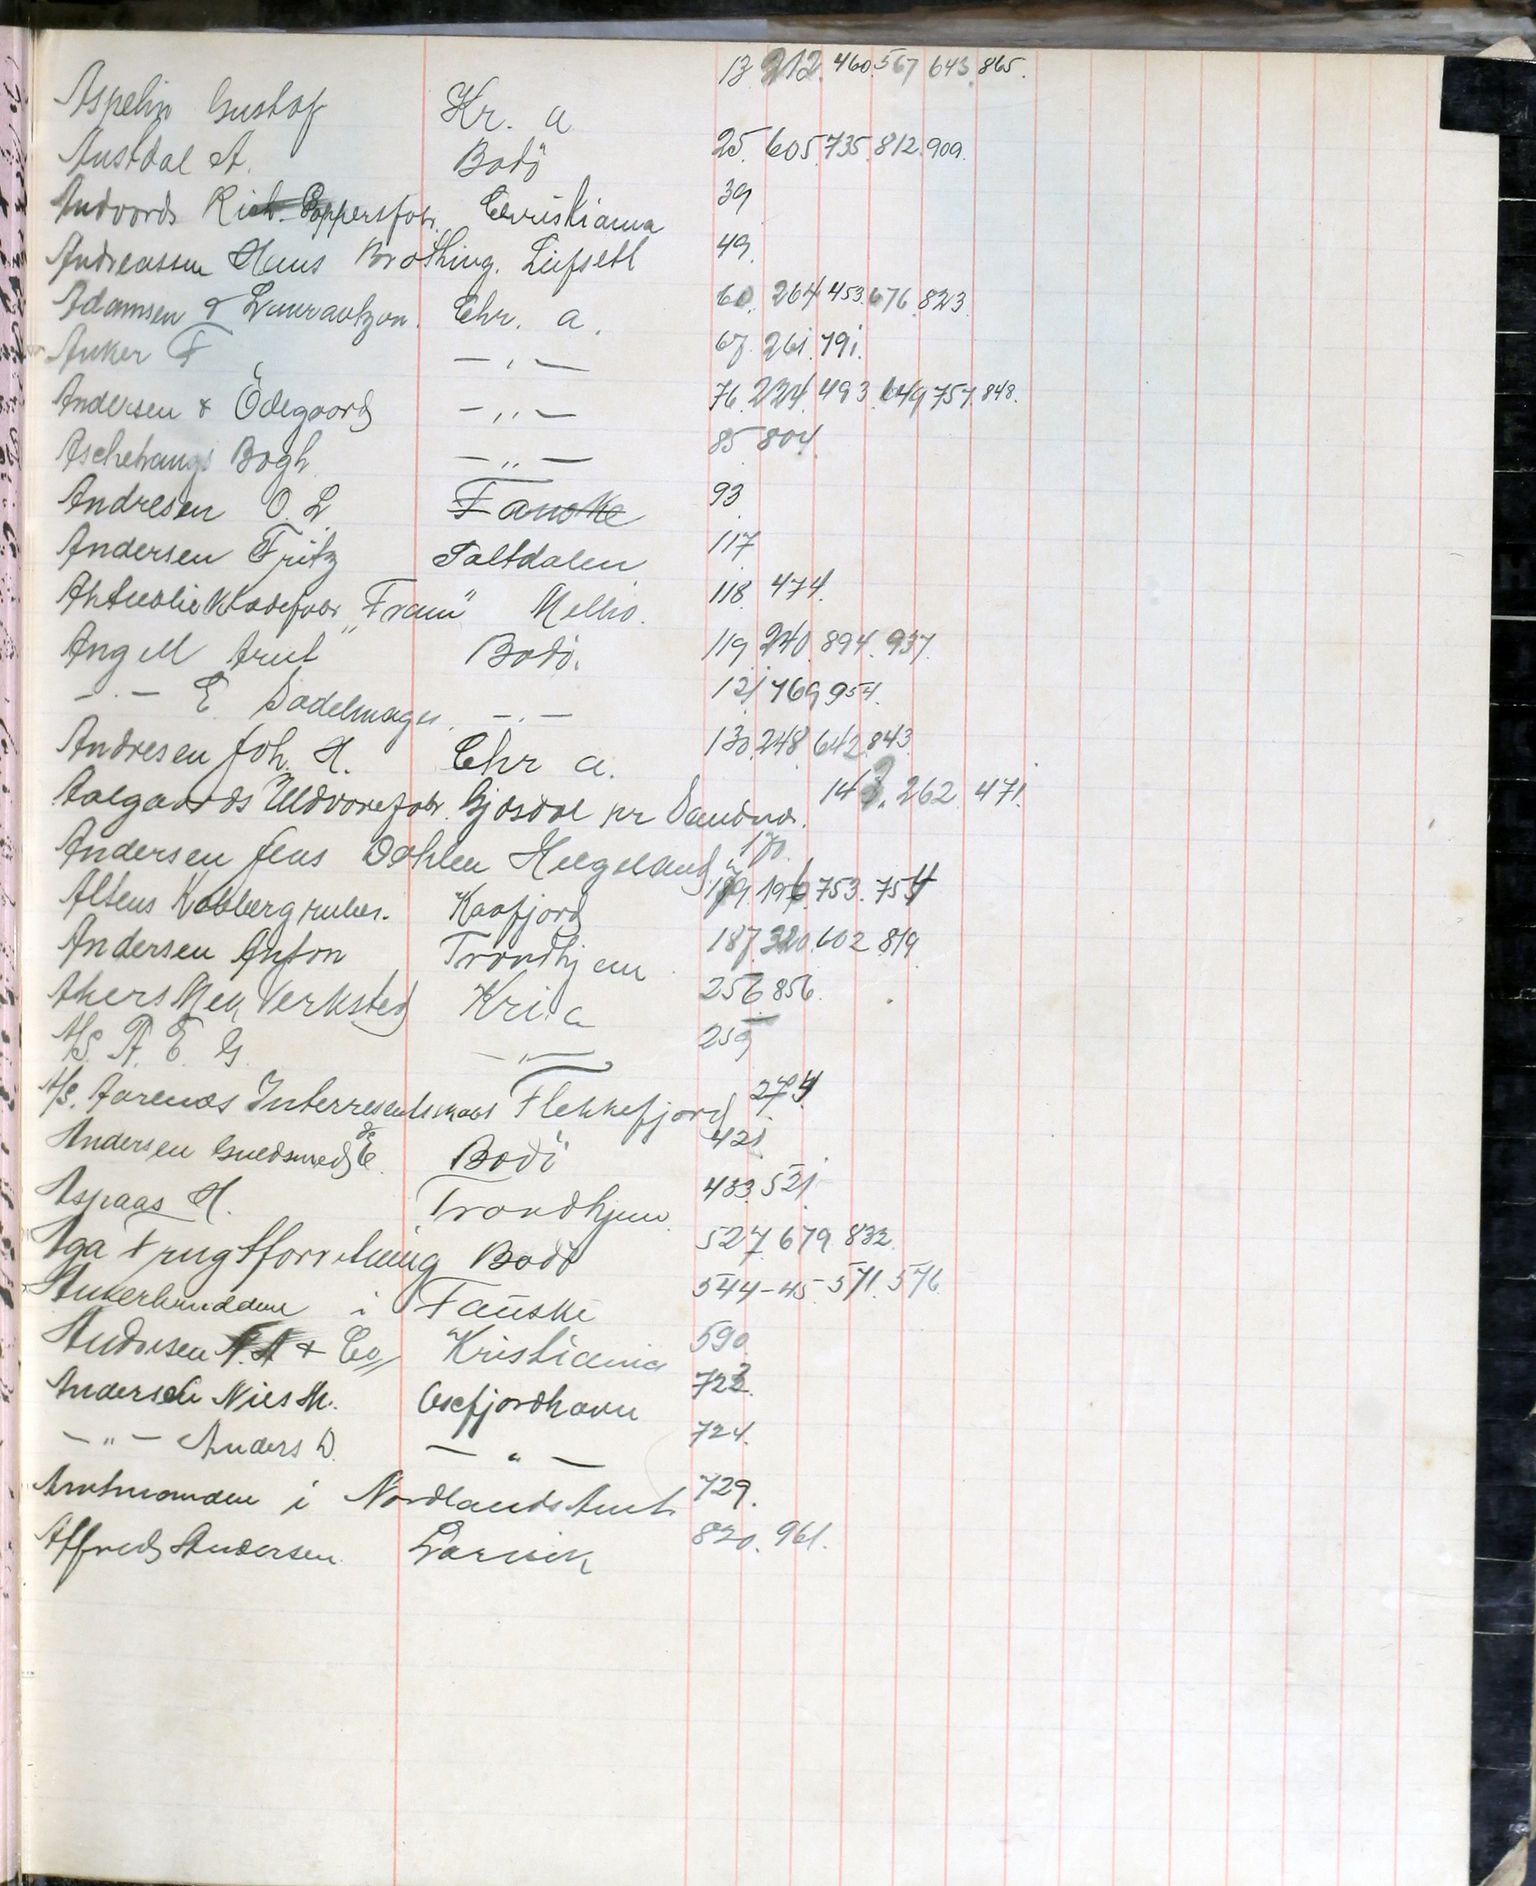 Aspelin Gustaf Kr. a 13 212. 460. 567 643. 865.
Austdal A. Bodö 25. 605. 735. 812. 909.
Andvords Rich. Christiania 39
Andreassen Hans 49.
Adamsen & Chr. a. 60. 264 453. 676. 823.
Anker F — „ — 67. 261. 791.
Andersen & Ödegaard — „ — 76. 224. 493. 649 757. 848.
Aschehaugs Bogh. — „ — 85 804.
Andresen O. L Fauske 93
Andersen Fritz Saltdalen 117
„Fram" 118. 474.
Angell Arnt Bodö. 119 240. 894. 937.
— „ — E. Sadelmager. — „ — 121 769 954.
Andresen Joh. H. Chr a. 130. 248. 642. 843.
Aalgaards Uldvarefabr. Gjesdal nr Sandnes. 143. 262. 471.
Andersen Jens Helgeland 170.
Altens Kobbergruber. Kaafjord 189 196. 753. 754
Andersen Anton Trondhjem 187. 320. 602. 819.
Akers Mek Verksted Kri. a 256 856.
A/S. A. E. G. — „ — 259
A/S. Aarenæs Interressentskab Flekkefjord 274.
Andersen Guldsmed E. Bodö 421
Aspaas H. Trondhjem 483. 521.
Aga Frugtforretning Bodö 527. 679. 832.
i Fauske 544-45. 571. 576.
Andersen & Co Kristiania 590.
Andersen Nils M. 722.
— „ — Anders D. — „ — 724.
Amtmanden i Nordlands Amt 729.
Alfred Andersen Larvik 820. 961.